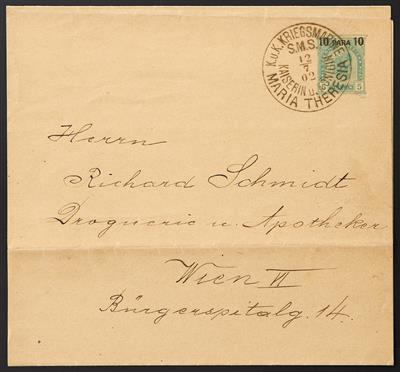 K.u.K. KRIEGSMARINE
S.M.S.
12
7
02
KAISERIN U. KÖNIGIN
MARIA THERESIA
10 PARA 10
5
Herrn
Richard Schmidt
Droguerie u. Apotheker
Wien VI
Bürgerspitalg. 14.